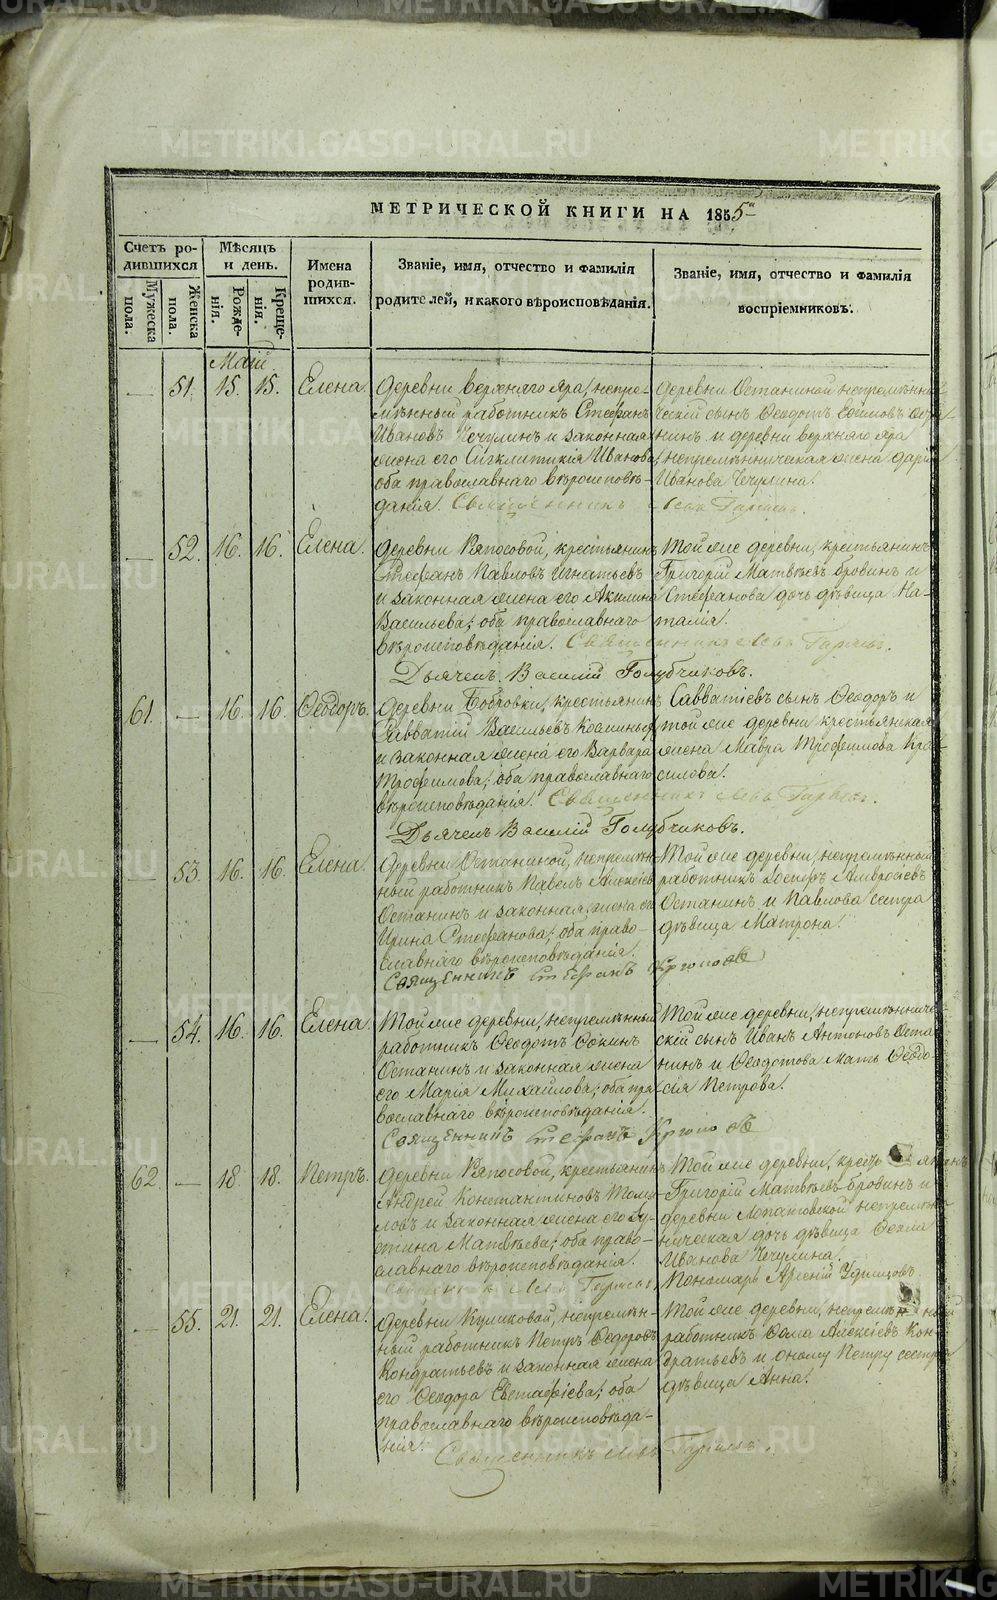 METRIKI.GASO-URAL.RU
МЕТРИЧЕСКОЙ КНИГИ НА 1855
Счетъ родившихся
Мужеска пола.
Женска пола.
Мѣсяцъ и день.
Рожденія.
Крещенія.
Имена родившихся.
Званіе, имя, отчество и фамилія родителей, и какого вѣроисповѣданія.
Званіе, имя, отчество и фамилія воспріемниковъ.
Май
— 51. 15. 15. Елена.
Деревни Верхняго Яра, непре-
мѣнный работникъ Стефанъ
Ивановъ Чечулинъ и законная
жена его Сигклитикія Иванова,
оба православнаго вѣроисповѣ-
данія. Священникъ
Деревни Останиной непремѣнни-
ческій сынъ Ѳеодотъ
нинъ и деревни Верхняго Яра
непремѣнническая жена Дарія
Иванова Чечулина.
— 52. 16. 16. Елена.
Деревни Ряпосовой, крестьянинъ
Стефанъ Павловъ Игнатьевъ
и законная жена его Акилина
Васильева; оба православнаго
вѣроисповѣданія. Священникъ
Дьячекъ Василій Голубчиковъ.
Той же деревни, крестьянинъ
Григорій Матвѣевъ Бровинъ и
Стефанова дочь дѣвица На-
талія.
61. — 16. 16. Ѳеодоръ.
Деревни Бобровки, крестьянинъ
Савватій Васильевъ
и законная жена его Варвара
Трофимова; оба православнаго
вѣроисповѣданія. Священникъ
Дьячекъ Василій Голубчиковъ.
Савватіевъ сынъ Ѳеодоръ и
той же деревни крестьянская
жена Мавра Трофимова Кра-
силова.
— 53. 16. 16. Елена.
Деревни Останиной, непремѣн-
ный работникъ Павелъ Алексѣевъ
Останинъ и законная жена его
Ирина Стефанова; оба право-
славнаго вѣроисповѣданія.
Священникъ Стефанъ
Той же деревни, непремѣнный
работникъ Іосифъ Амвросіевъ
Останинъ и Павлова сестра
дѣвица Матрона.
— 54. 16. 16. Елена.
Той же деревни, непремѣнный
работникъ Ѳеодотъ Ѳокинъ
Останинъ и законная жена
его Марія Михайлова; оба пра-
вославнаго вѣроисповѣданія.
Священникъ Стефанъ
Той же деревни, непремѣнниче-
скій сынъ Иванъ Антоновъ Оста-
нинъ и Ѳеодотова мать Ѳеодо-
сія Петрова.
62. — 18. 18. Петръ.
Деревни Ряпосовой, крестьянинъ
Андрей Константиновъ Томи-
ловъ и законная жена его Іу-
стина Матвѣева; оба право-
славнаго вѣроисповѣданія.
Той же деревни, крестьянинъ
Григорій Матвѣевъ Бровинъ и
деревни Лопатовской непремѣн-
ническая дочь дѣвица Ѳекла
Иванова Чечулина.
Пономарь Арсеній Удинцовъ
— 55. 21. 21. Елена.
Деревни Куликовой, непремѣн-
ный работникъ Петръ Ѳедоровъ
Кондратьевъ и законная жена
его Ѳеодора Евстафіева; оба
православнаго вѣроисповѣда-
нія.
Священникъ
Той же деревни, непремѣнный
работникъ Ѳома Алексѣевъ Кон-
дратьевъ и оному Петру сестра
дѣвица Анна.